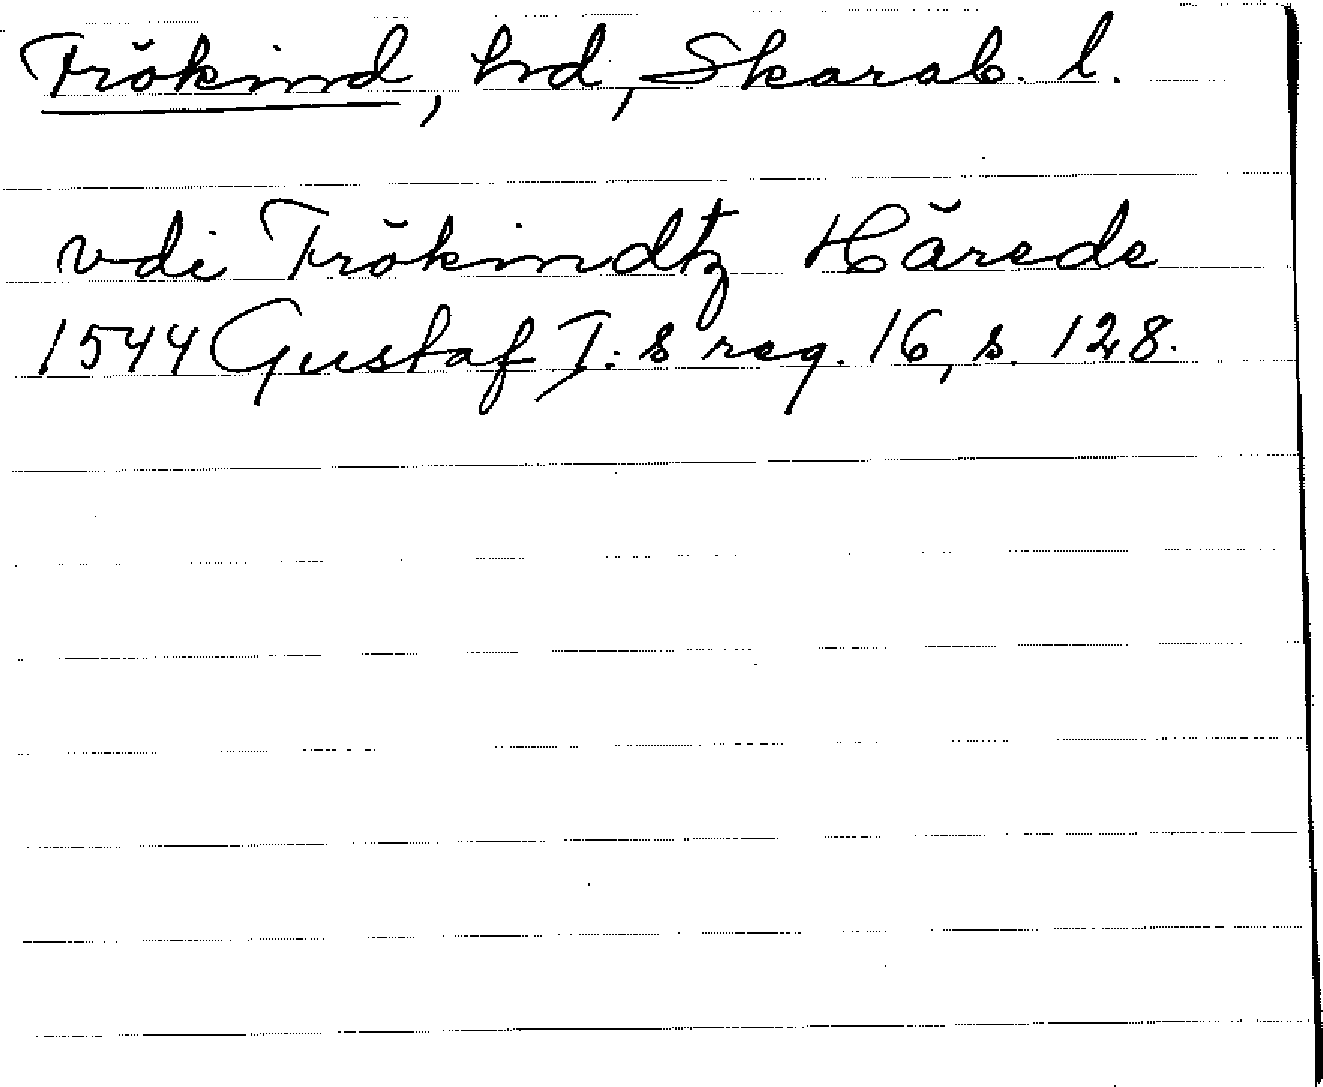 Frökind, hd, Skarab. l.
vdi Frökindtz Härede
1544 Gustaf I:s reg. 16, s. 128.